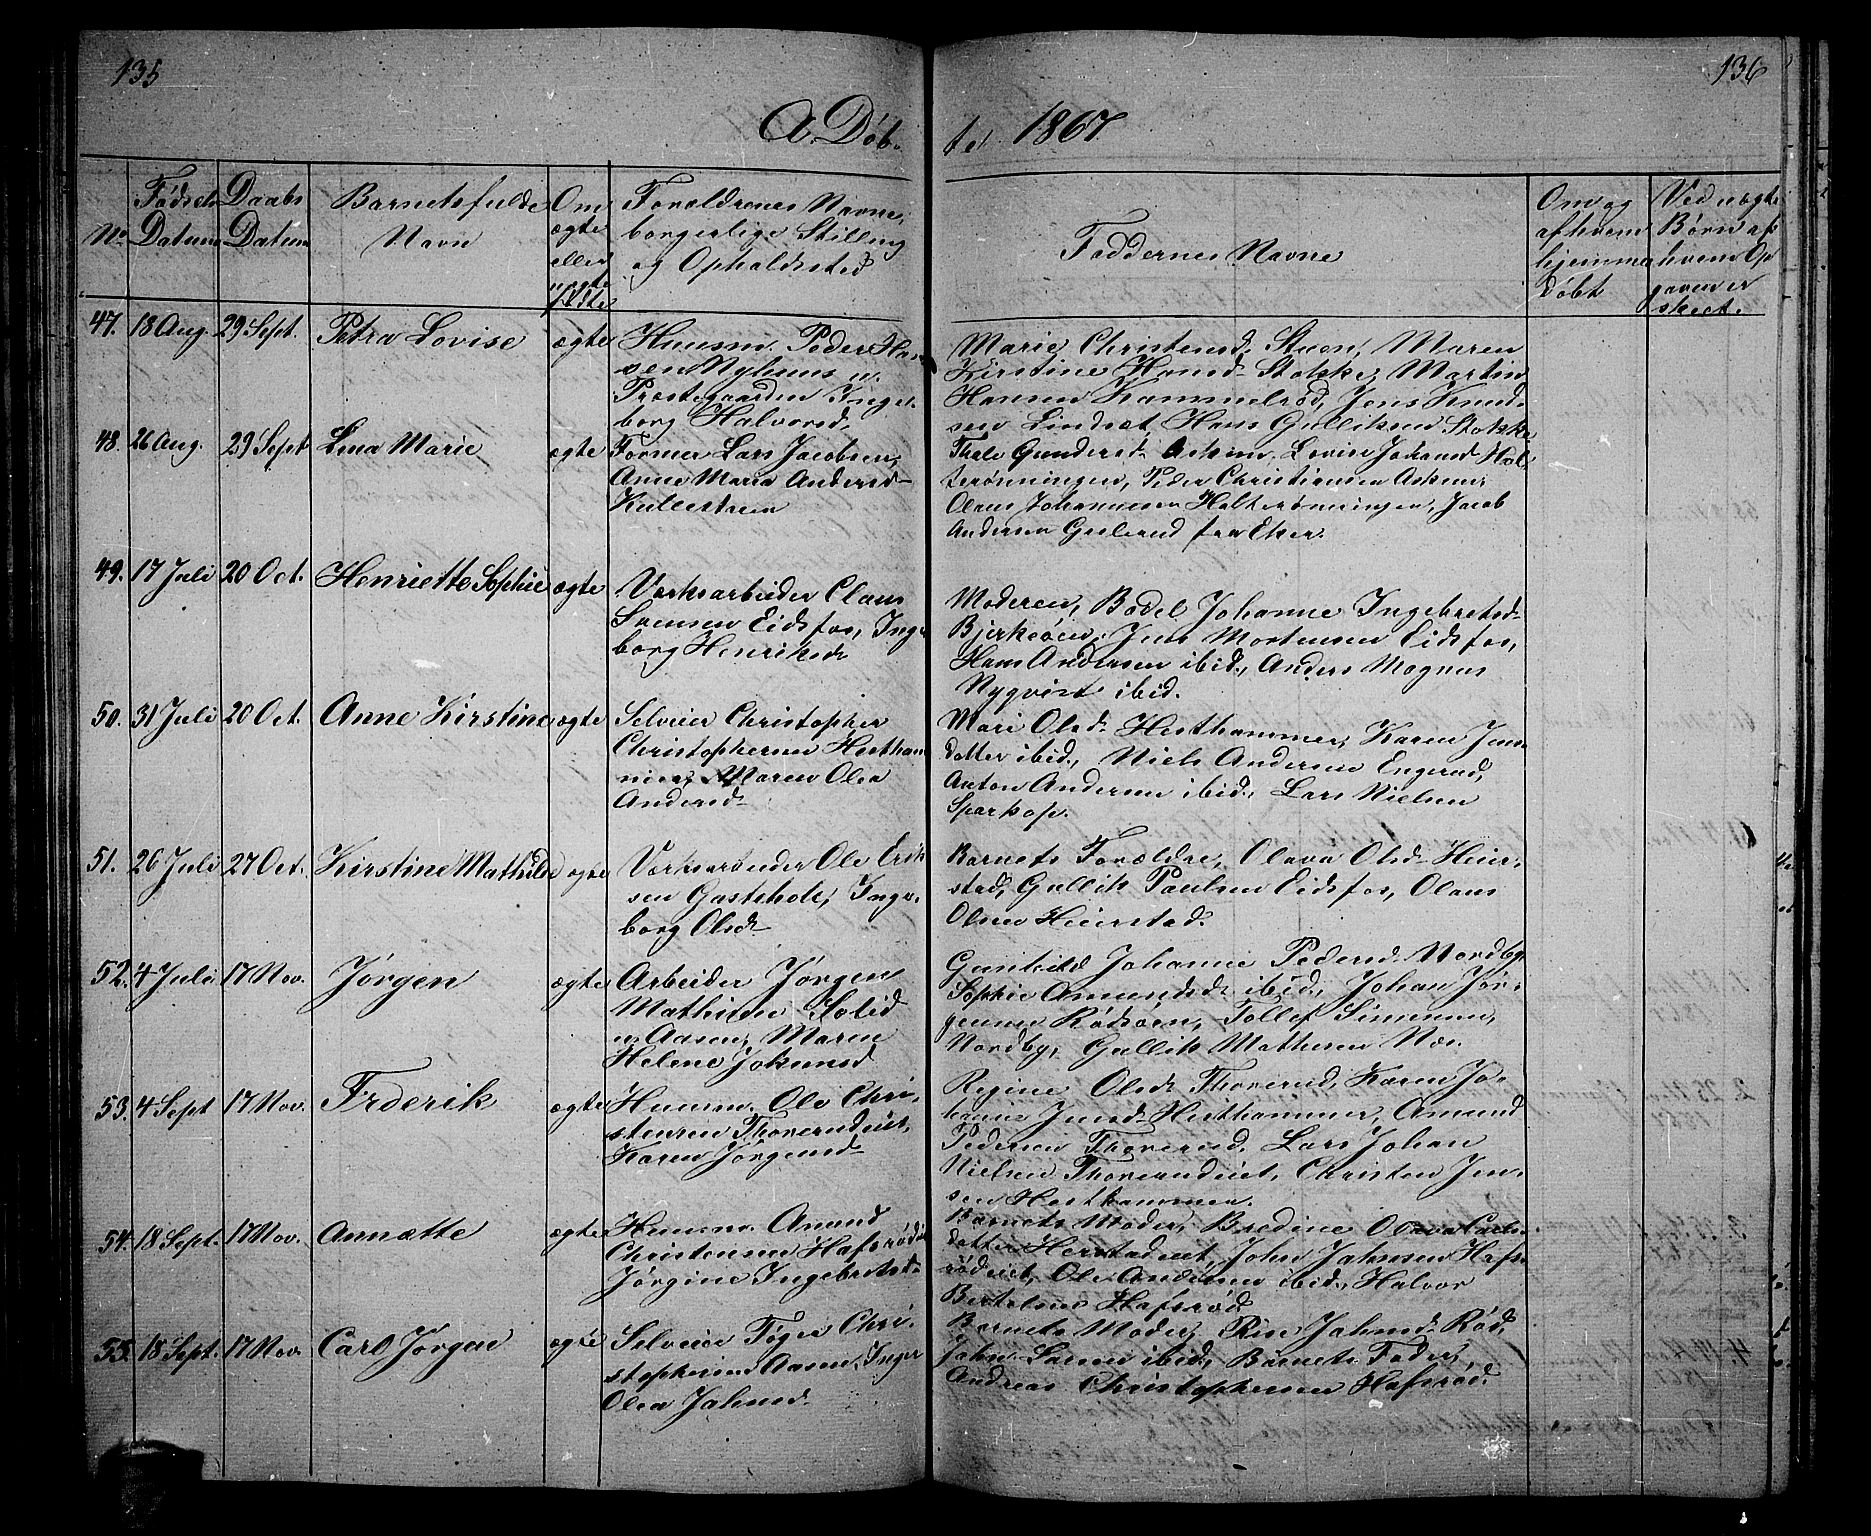 135
136
A. Døb-
te. 1867.
No.
Fødsels
Datum
Daabs
Datum
Barnets fulde
Navn
Om
ægte
eller
uægte
født
Forældrenes Navne,
borgerlige Stilling
og Opholdssted
Faddernes Navne
Om og
af hvem
hjemme
døbt
Ved uægte
Børn af
hvem Op
gaven er
skeet.
47. 18 Aug. 29 Sept. Petra Lovise ægte
Huusm. Peder Han-
sen Nyhuus u.
Præstegaarden Inge-
borg Halvorsd.
Marie Christensd. Stuen, Maren
Kirstine Hansd. Stokke, Martin
Hansen Kammelrød, Jens Knud-
sen Lindsæt Hans Gulliksen Stokke
48. 26 Aug. 29 Sept Lina Marie ægte
Former Lars Jacobsen,
Anne Maria Andersd
Kullestreen
Thale Gundersd. Askim, Lovise Johansd. Hol-
terønningen, Peder Christiansen Askim,
Olaus Johannesen Holterønningen, Jacob
Andersen Guslerud fra Eker.
49. 17 Juli 20 Oct. Henriette Sophie ægte
Værksarbeider Claus
Svensen Eidsfos, Inge-
borg Henriksd
Moderen, Bodel Johanne Ingebretsd
Bjerkøen, Jens Mortensen Eidsfos,
Hans Andersen ibid., Anders Magnus
Nyqvist ibid.
50. 31 Juli 20 Oct. Anne Kirstine ægte
Selveier Christopher
Christophersen Hestham-
mer, Maren Olea
Andersd
Mari Olsd Hesthammer, Karen Jens-
datter ibid., Niels Andersen Engerud,
Anton Andersen ibid., Lars Nielsen
Sparkop.
51. 26 Juli 27 Oct. Kirstine Mathilde ægte
Værksarbeider Ole Erik
sen Gasteholt, Inge-
borg Olsd
Barnets Forældre, Olava Olsd Heier-
stad, Gullik Paulsen Eidsfos, Olaus
Olsen Heierstad.
52. 4 Juli 17 Nov. Jørgen ægte
Arbeider Jørgen
Mathisen
u. Aasen, Maren
Helene Jokumsd
Gunhild Johanne Pedersd. Nordby
Sophie Amundsd ibid., Johan Jør-
gensen Rødsøen, Tollef Simensen,
Nordby, Gullik Mathesen Næs.
53. 4 Sept 17 Nov. Frderik ægte
Huusm. Ole Chri-
stensen Thorerudeiet,
Karen Jørgensd
Regine Olsd Thorerud, Karen Jo-
hanne Jensd Hesthammer, Amund
Pedersen Thorerud, Lars Johan
Nielsen Thorerudeiet, Christen Jen-
sen Hesthammer.
54. 18 Sept. 17 Nov. Annætte ægte
Huusm. Anund
Christensen Hafsrødei
Jørgine Ingebretsd
Barnets Moder, Bredine Olava Carls-
datter Herstadeiet, John Jahnsen Hafs-
rødeiet, Ole Andersen ibid., Halvor
Bertelsen Hafsrød
55. 18 Sept. 17 Nov. Carl Jørgen ægte
Selveier Tøger Chri-
stophersen Aasen, Inger
Olea Jahnsd.
Barnets Moder, Rise Jahnsd. Rød,
John Larsen ibid., Barnets Fader,
Andreas Christophersen Hafsrød.